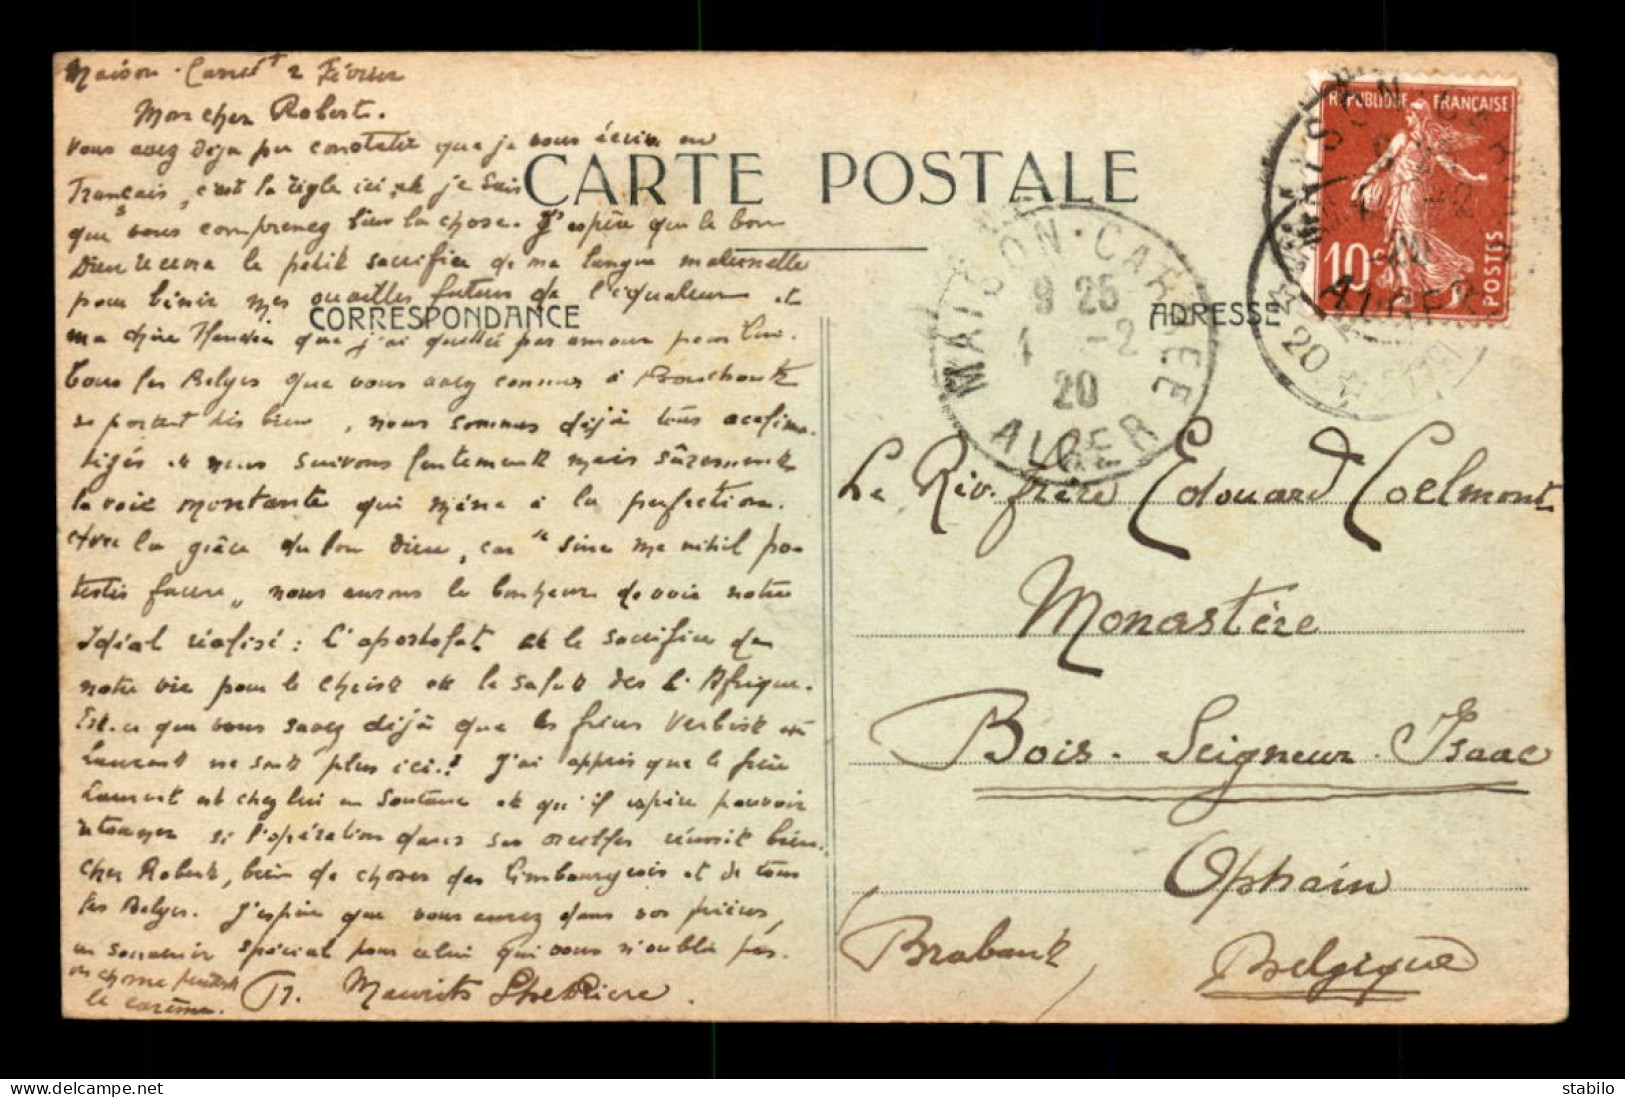 Maison-Carrée 2 Février
Mon cher Robert.
Vous avez déja pu constater que je vous écris en
Français, c'est la règle ici et je sais
que vous comprenez bien la chose. J'espère que le bon
Dieu recevra le petit sacrifice de ma langue maternelle
pour bénir mes ouailles futurs de l'équateur et
ma chère que j'ai quittée par amour pour Lui.
Tous les Belges que vous avez connus à Bouchout
se portent très bien, nous sommes déjà tous acclima-
tisés et nous suivons lentement mais sûrement
la voie montante qui mène à la perfection.
Avec la grâce du bon Dieu, car "sine me nihil po-
testis facere" nous aurons le bonheur de voir notre
Idéal réalisé : L'apostolat et le sacrifice de
notre vie pour le Christ et le salut des L'Afrique.
Est-ce que vous savez déjà que les frères Verbist et
Laurent ne sont plus ici.? J'ai appris que le frère
Laurent est chez lui en soutane et qu'il espère pouvoir
retourner si l'opération dans ses oreilles réussit bien.
Cher Robert, bien de choses des Limbourgeois et de tous
les Belges. J'espère que vous aurez dans vos prières,
un souvenir spécial pour celui qui vous n'oublie pas.
le carême.
Fr. Maurits
CARTE POSTALE
CORRESPONDANCE
ADRESSE
RÉPUBLIQUE FRANÇAISE
10c
POSTES
MAISON-CARRÉE
9 25
1 -2
20
ALGER
MAISON-CARRÉE
-2
20
ALGER
Le Rév. frère Edouard Coelmont
Monastère
Bois-Seigneur-Isaac
Ophain
Brabant
Belgique
stabilo